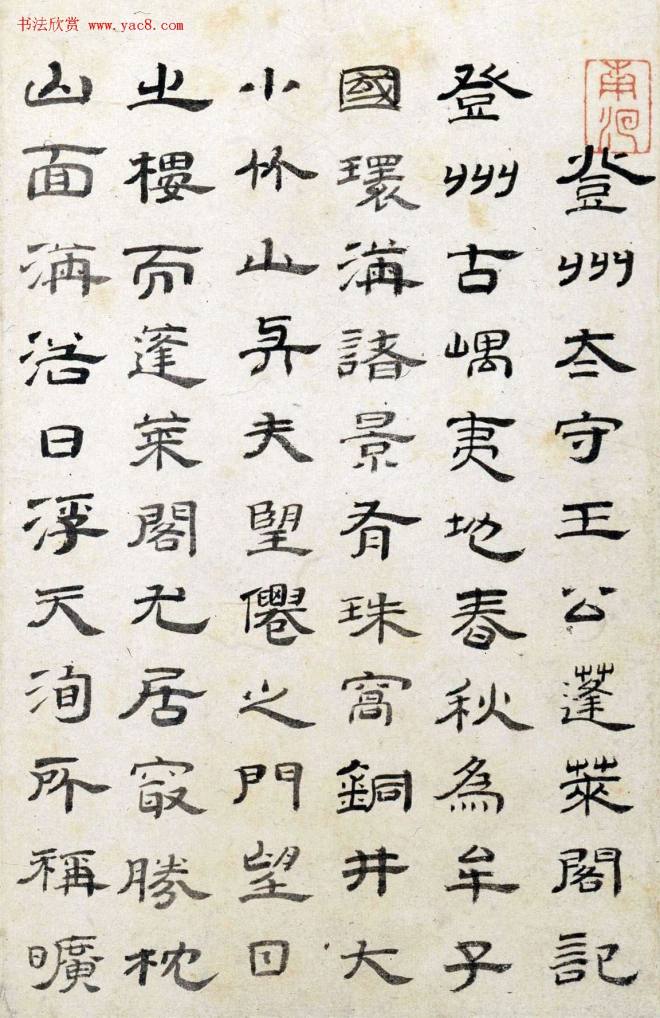 书法欣赏 www.yac8.com
登州夳守王公蓬萊閣記
登州古嵎夷地春秋為牟子
國環海諸景有珠窩銅井大
小竹山與夫望僊之門望日
之樓而蓬萊閣尤居最勝枕
山面海浴日浮天洵所稱曠